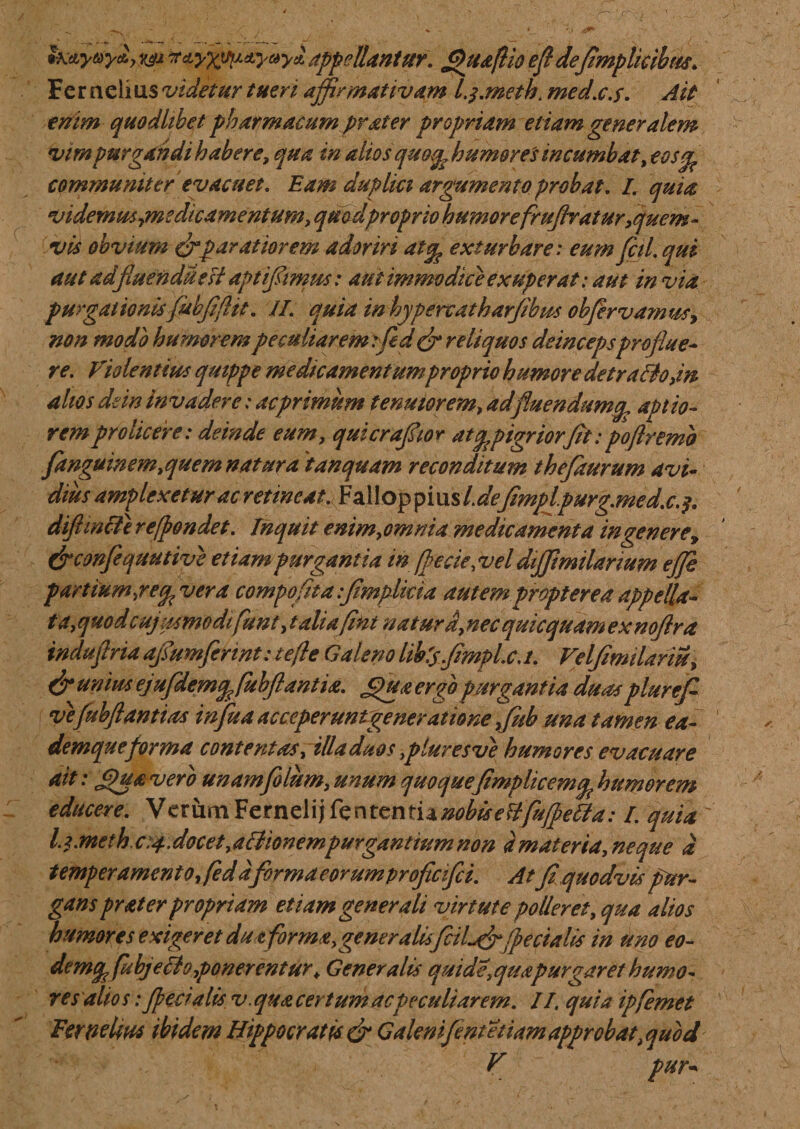 ἑκαγωγά, καὶ παγχυμαγωγά appellantur. Quæstio est de simplicibus.
Fernelius videtur tueri affirmativam l.3.meth. med.c.5. Ait
enim quodlibet pharmacum præter propriam etiam generalem
vim purgandi habere, qua in alios quoq; humores incumbat, eosq;
communiter evacuet. Eam duplici argumento probat. I. quia
videmus, medicamentum, quod proprio humore frustratur, quem-
vis obvium & paratiorem adoriri atq; exturbare: eum scil. qui
aut ad fluendũ est aptissimus: aut immodice exuperat: aut in via
purgationis subsistit. II. quia in hypercatharsibus observamus,
non modò humorem peculiarem: sed & reliquos deinceps proflue-
re. Violentius quippe medicamentum proprio humore detracto, in
alios dein invadere: ac primùm tenuiorem, ad fluendumq; aptio-
rem prolicere: deinde eum, qui crassior atq; pigrior sit: postremò
sanguinem, quem natura tanquam reconditum thesaurum avi-
diùs amplexetur ac retineat. Falloppius l.de simpl.purg.med.c.3.
distinctè respondet. Inquit enim, omnia medicamenta in genere,
& consequutivè etiam purgantia in specie, vel dissimilarium esse
partium, req; vera composita: simplicia autem propterea appella-
ta, quod cujusmodi sunt, talia sint naturâ, nec quicquam ex nostra
industria assumserint: teste Galeno lib.5. simpl.c.1. Vel similariũ,
& unius ejusdemq; substantiæ. Quæ ergò purgantia duas pluresſ-
ve substantias in sua acceperunt generatione, sub una tamen ea-
demque forma contentas, illa duos, pluresve humores evacuare
ait: Quæ verò unam solùm, unum quoque simplicemq; humorem
educere. Verùm Fernelij sententia nobis est suspecta: I. quia
l.3.meth.c.4.docet, actionem purgantium non à materia, neque à
temperamento, sed à forma eorum proficisci. At si quodvis pur-
gans præter propriam etiam generali virtute polleret, qua alios
humores exigeret duæ formæ, generalis scil. & specialis in uno eo-
demq; subjecto, ponerentur. Generalis quidẽ, quæ purgaret humo-
res alios: specialis v. quæ certum ac peculiarem. II. quia ipsemet
Fernelius ibidem Hippocratis & Galeni sentẽtiam approbat, quòd
V pur-